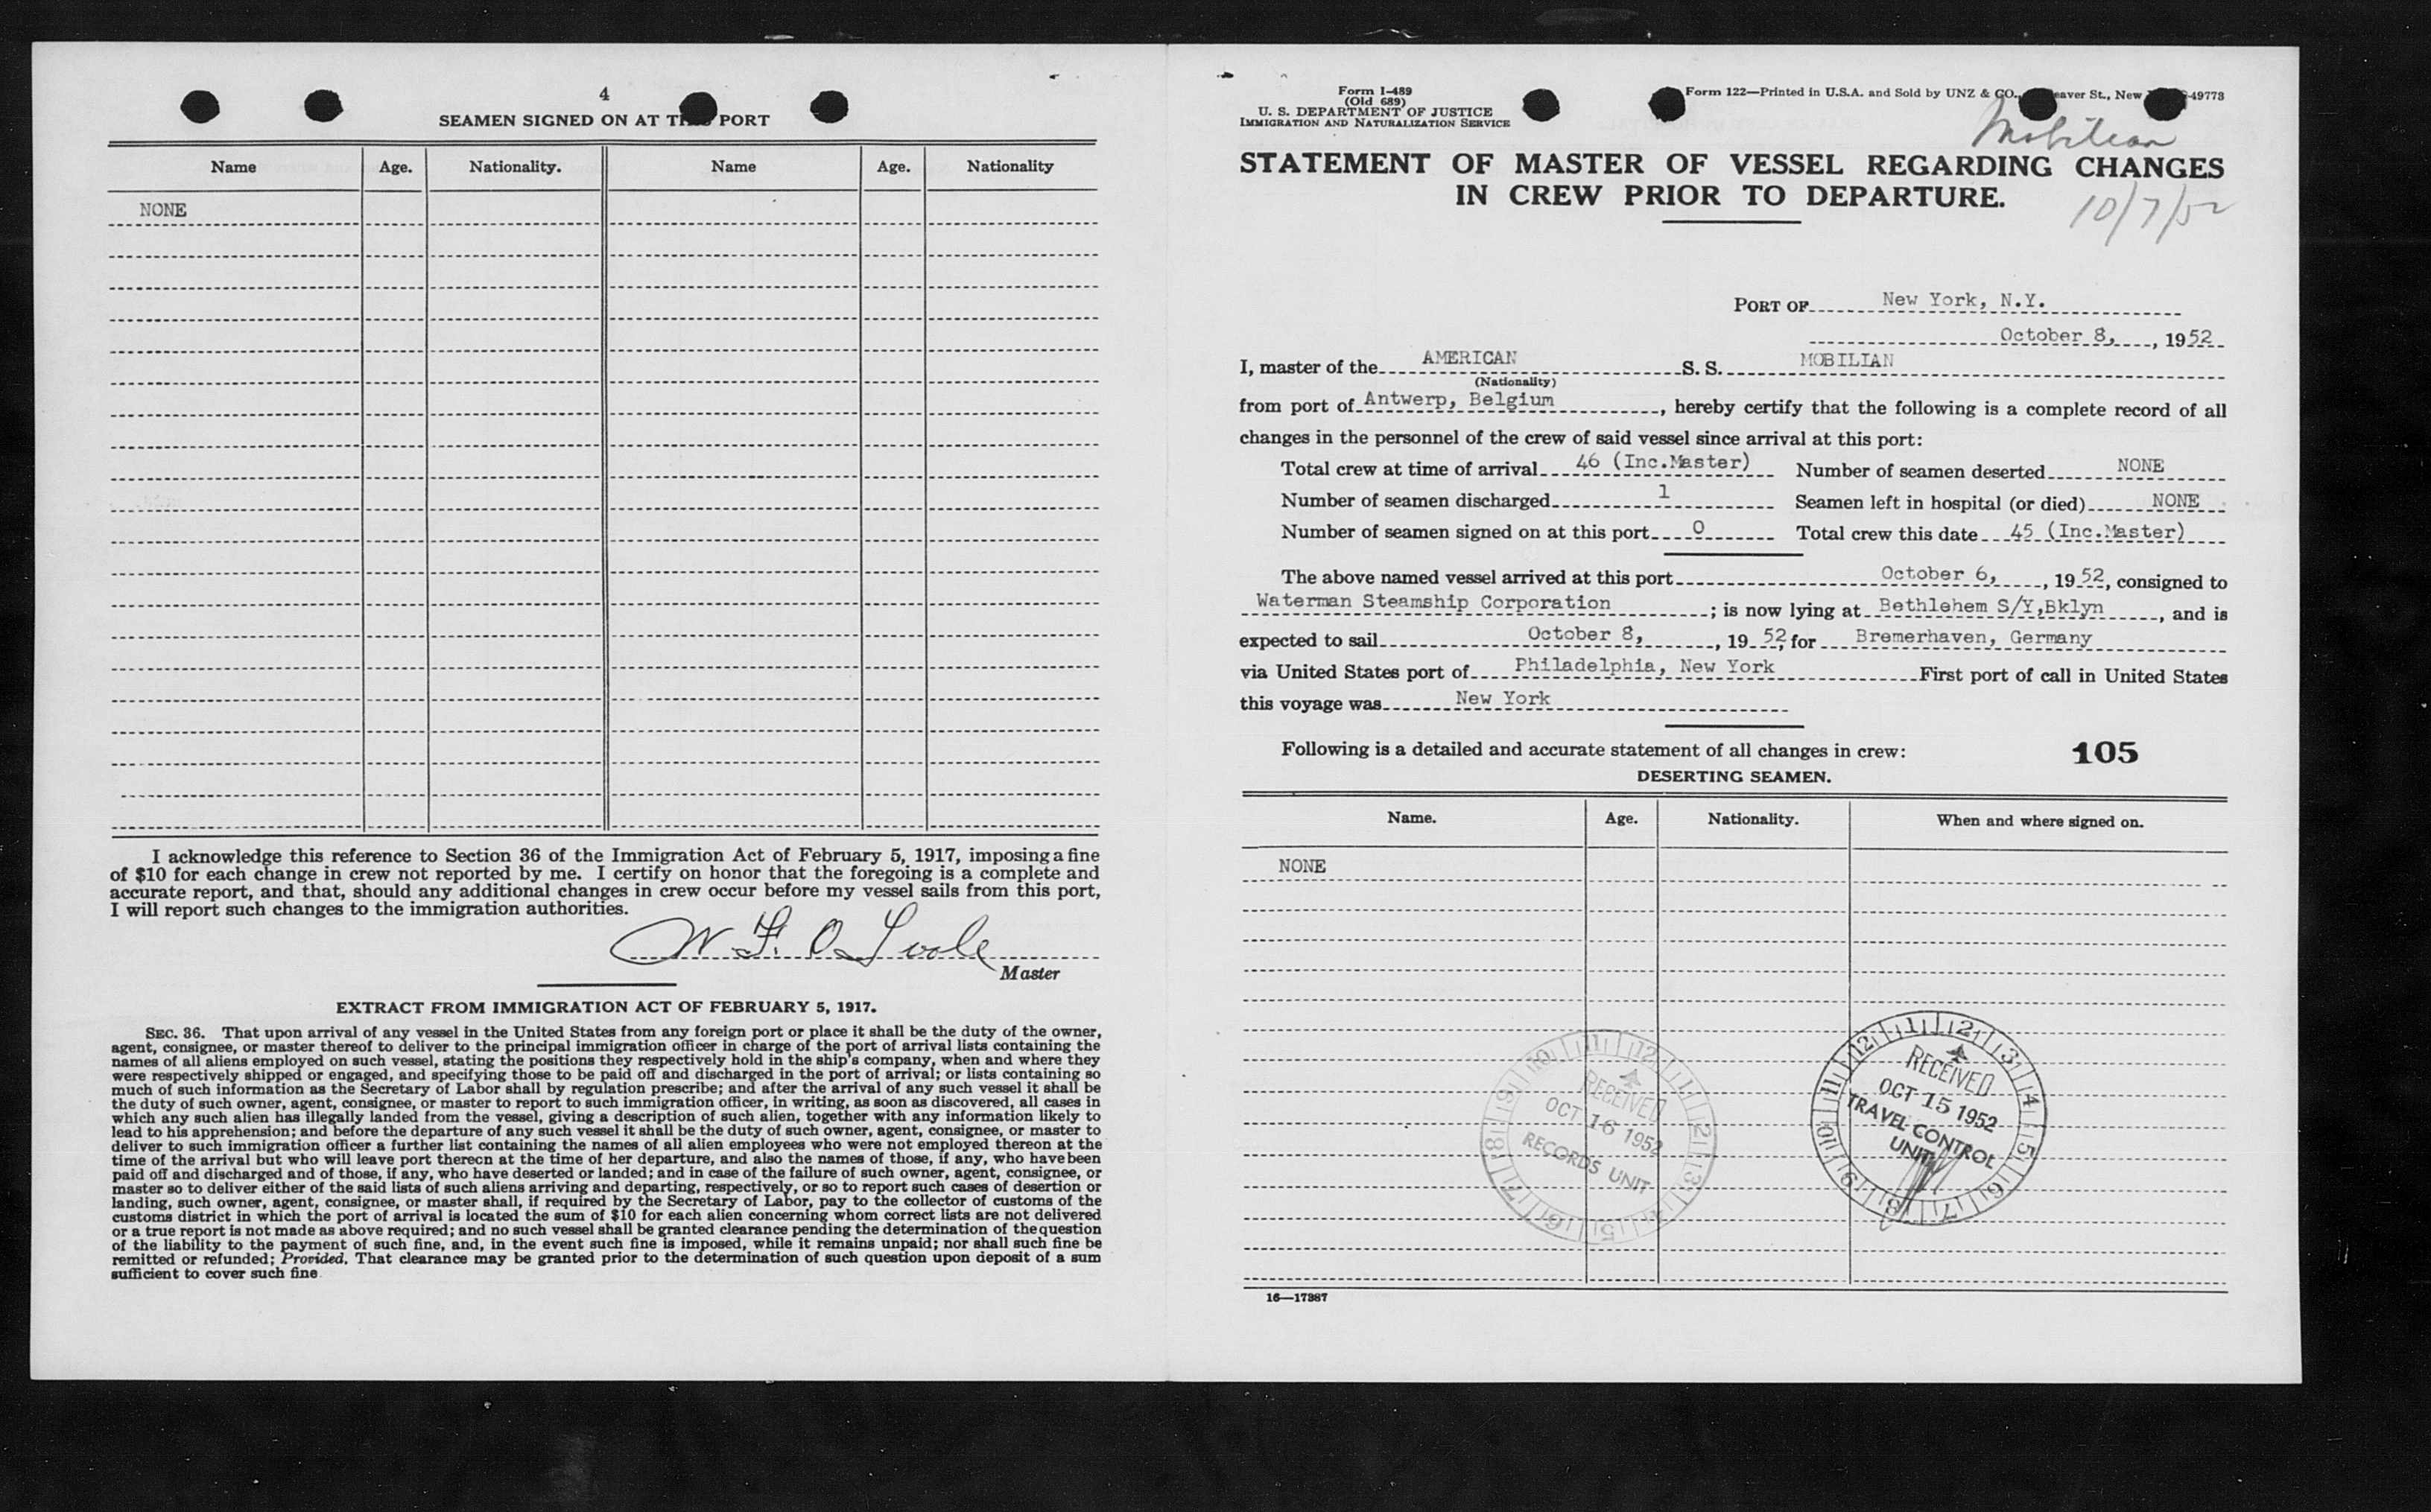 4
SEAMEN SIGNED ON AT THIS PORT
Name Age. Nationality. Name Age. Nationality
NONE
I acknowledge this reference to Section 36 of the Immigration Act of February 5, 1917, imposing a fine
of $10 for each change in crew not reported by me. I certify on honor that the foregoing is a complete and
accurate report, and that, should any additional changes in crew occur before my vessel sails from this port,
I will report such changes to the immigration authorities.
W F. O Toole
Master
EXTRACT FROM IMMIGRATION ACT OF FEBRUARY 5, 1917.
SEC. 36. That upon arrival of any vessel in the United States from any foreign port or place it shall be the duty of the owner,
agent, consignee, or master thereof to deliver to the principal immigration officer in charge of the port of arrival lists containing the
names of all aliens employed on such vessel, stating the positions they respectively hold in the ship's company, when and where they
were respectively shipped or engaged, and specifying those to be paid off and discharged in the port of arrival; or lists containing so
much of such information as the Secretary of Labor shall by regulation prescribe; and after the arrival of any such vessel it shall be
the duty of such owner, agent, consignee, or master to report to such immigration officer, in writing, as soon as discovered, all cases in
which any such alien has illegally landed from the vessel, giving a description of such alien, together with any information likely to
lead to his apprehension; and before the departure of any such vessel it shall be the duty of such owner, agent, consignee, or master to
deliver to such immigration officer a further list containing the names of all alien employees who were not employed thereon at the
time of the arrival but who will leave port thereon at the time of her departure, and also the names of those, if any, who have been
paid off and discharged and of those, if any, who have deserted or landed; and in case of the failure of such owner, agent, consignee, or
master so to deliver either of the said lists of such aliens arriving and departing, respectively, or so to report such cases of desertion or
landing, such owner, agent, consignee, or master shall, if required by the Secretary of Labor, pay to the collector of customs of the
customs district in which the port of arrival is located the sum of $10 for each alien concerning whom correct lists are not delivered
or a true report is not made as above required; and no such vessel shall be granted clearance pending the determination of the question
of the liability to the payment of such fine, and, in the event such fine is imposed, while it remains unpaid; nor shall such fine be
remitted or refunded; Provided, That clearance may be granted prior to the determination of such question upon deposit of a sum
sufficient to cover such fine
Form I-489
(Old 689)
U. S. DEPARTMENT OF JUSTICE
IMMIGRATION AND NATURALIZATION SERVICE
Form 122—Printed in U.S.A. and Sold by UNZ & CO., eaver St., New -49773
Mobilian
STATEMENT OF MASTER OF VESSEL REGARDING CHANGES
IN CREW PRIOR TO DEPARTURE.
10/7/52
PORT OF New York, N.Y.
October 8, , 1952
I, master of the AMERICAN S. S. MOBILIAN
(Nationality)
from port of Antwerp, Belgium , hereby certify that the following is a complete record of all
changes in the personnel of the crew of said vessel since arrival at this port:
Total crew at time of arrival 46 (Inc.Master) Number of seamen deserted NONE
Number of seamen discharged 1 Seamen left in hospital (or died) NONE
Number of seamen signed on at this port 0 Total crew this date 45 (Inc.Master)
The above named vessel arrived at this port October 6, , 1952, consigned to
Waterman Steamship Corporation ; is now lying at Bethlehem S/Y,Bklyn , and is
expected to sail October 8, , 1952, for Bremerhaven, Germany
via United States port of Philadelphia, New York First port of call in United States
this voyage was New York
Following is a detailed and accurate statement of all changes in crew: 105
DESERTING SEAMEN.
Name. Age. Nationality. When and where signed on.
NONE
RECEIVED
OCT 16 1952
RECORDS UNIT
RECEIVED
OCT 15 1952
TRAVEL CONTROL
UNIT
16—17387